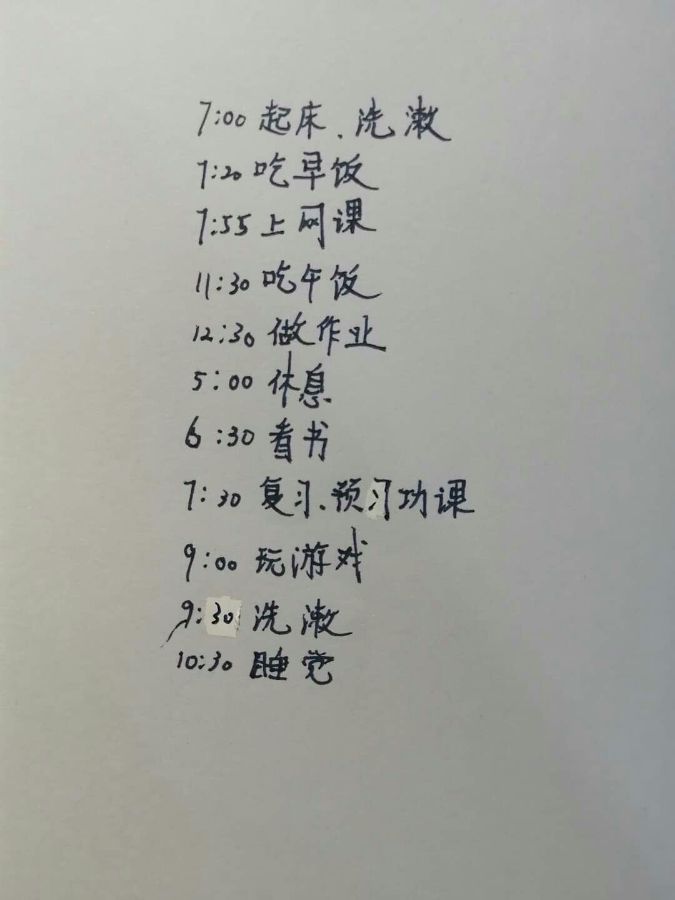 7:00 起床、洗漱
7:20 吃早饭
7:55 上网课
11:30 吃午饭
12:30 做作业
5:00 休息
6:30 看书
7:30 复习、预习功课
9:00 玩游戏
9:30 洗漱
10:30 睡觉